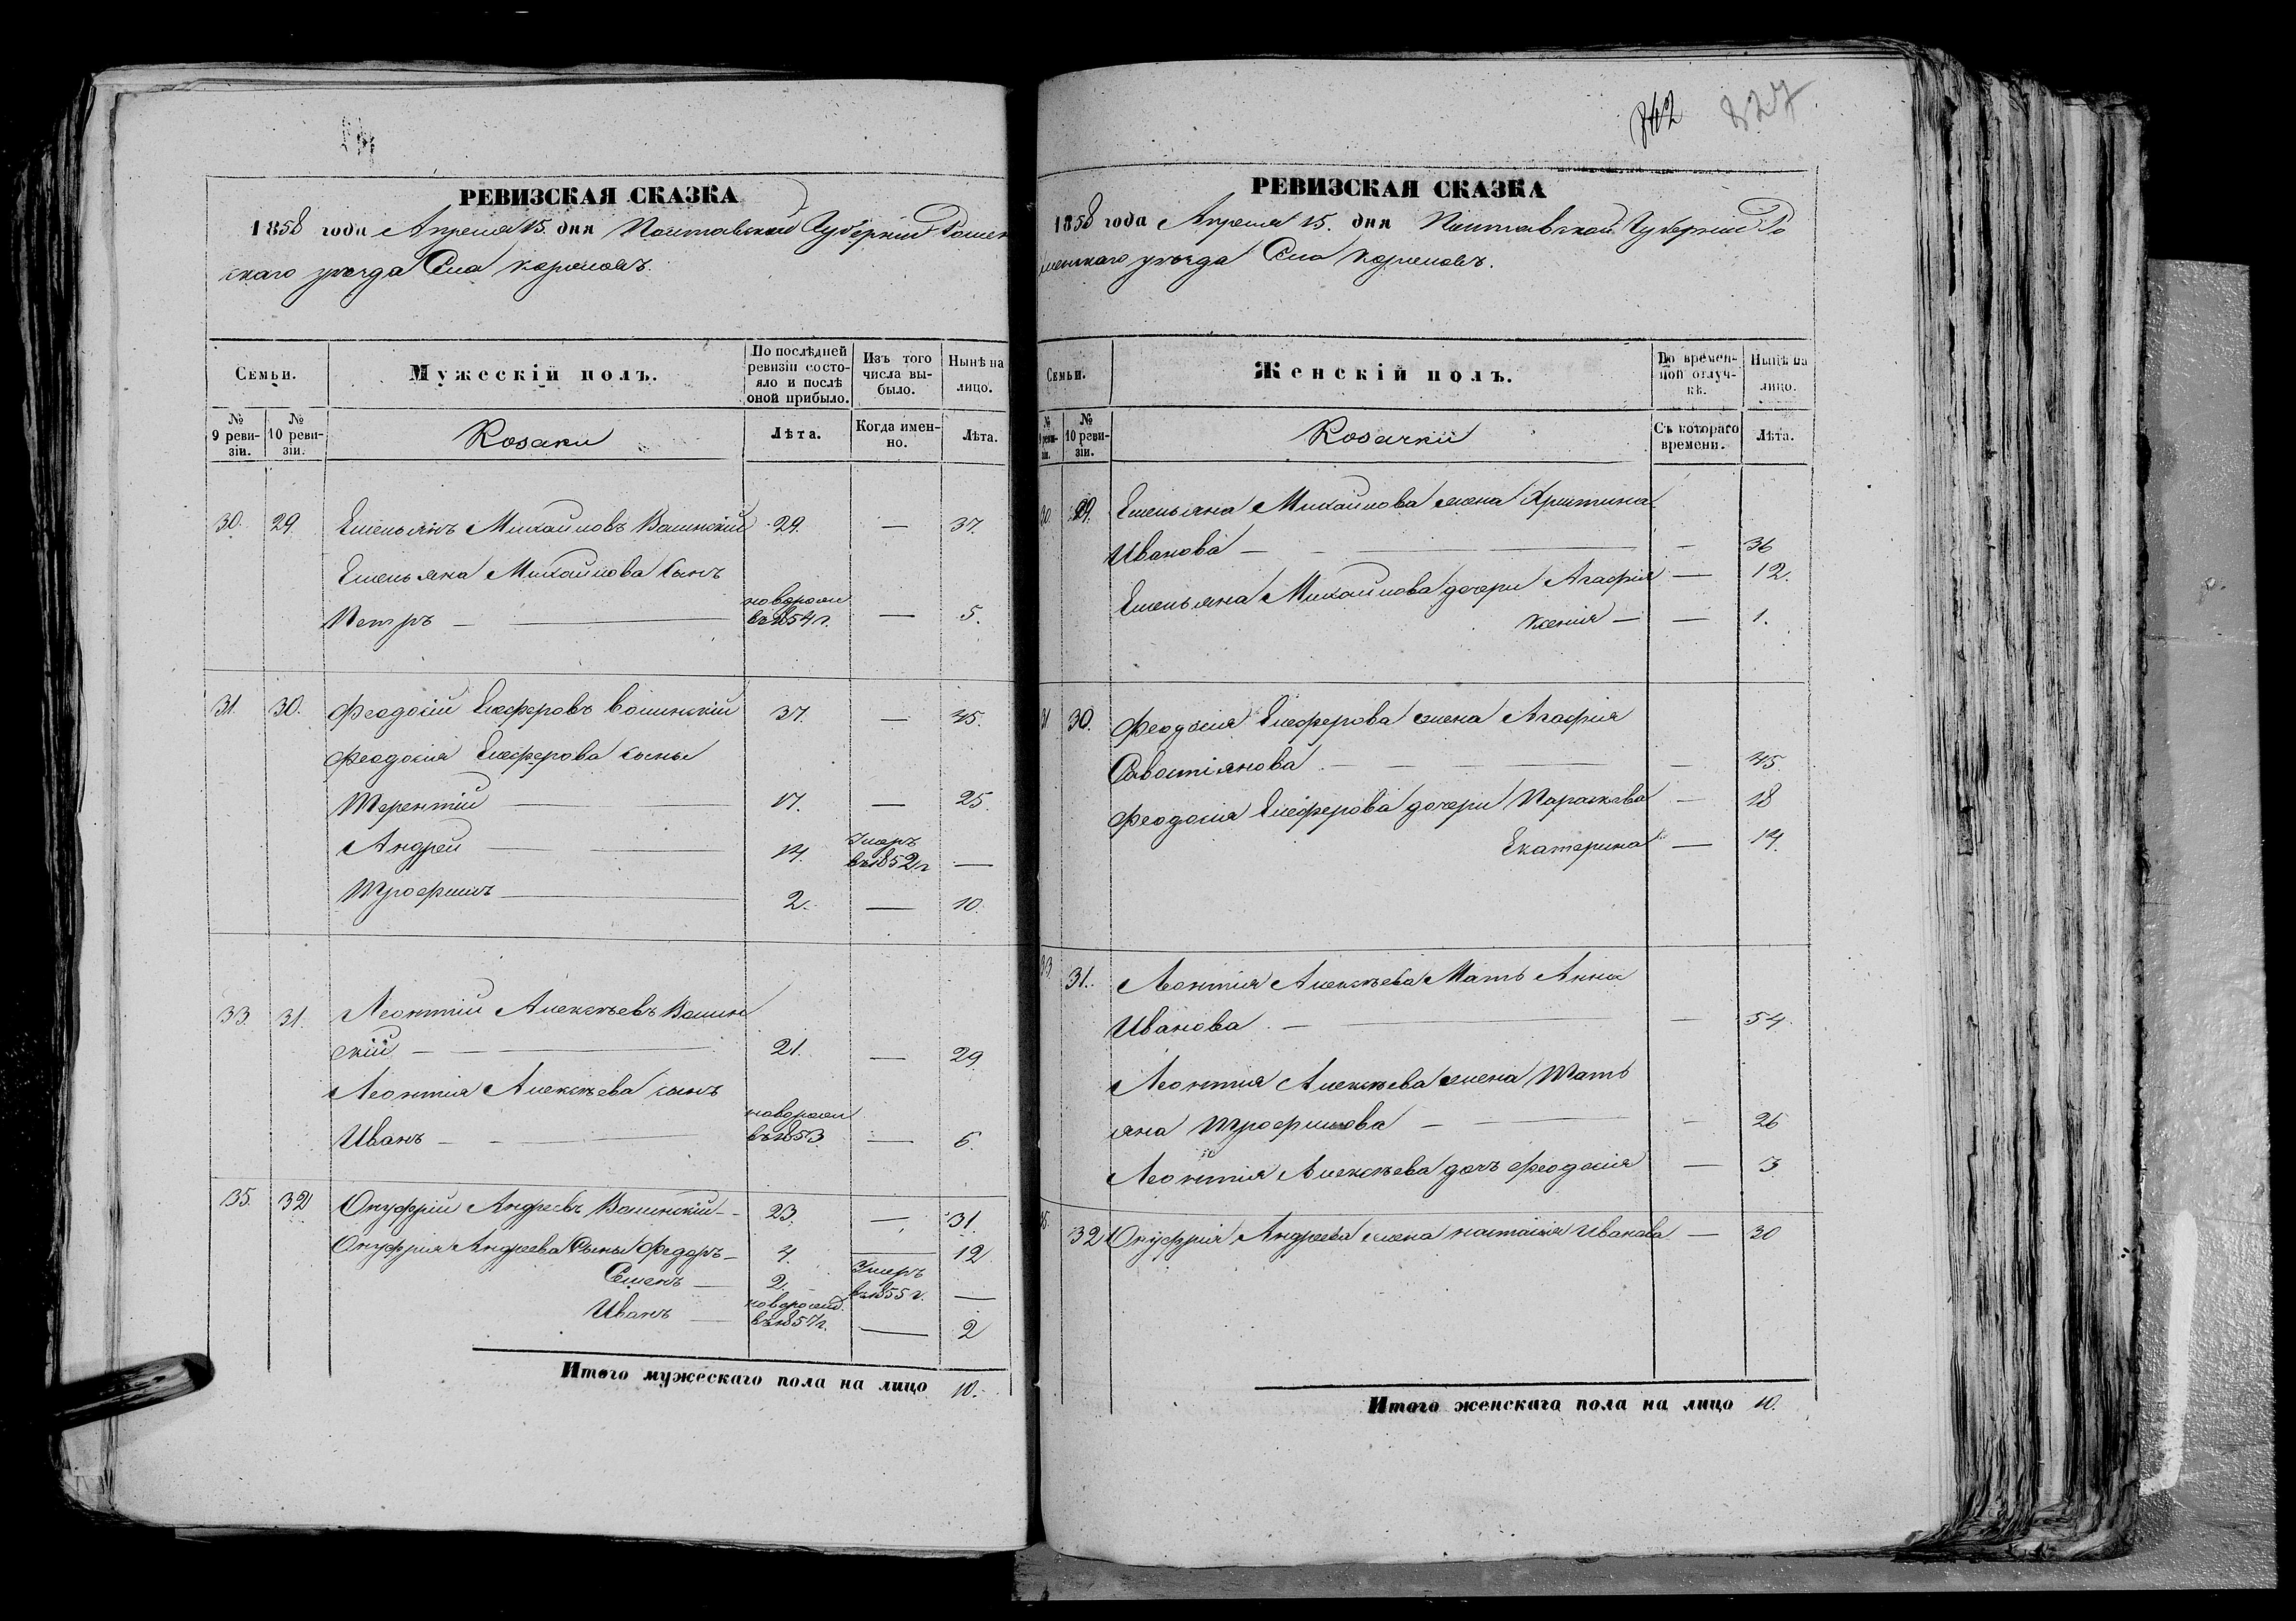 РЕВИЗСКАЯ СКАЗКА
1858 года Апреля 15. дня Полтавской Губернии Ромен
скаго уѣзда Села Кореновъ.
Семьи.
Мужескій полъ.
По послѣдней ревизіи состояло и послѣ оной прибыло.
Изъ того числа выбыло.
Нынѣ на лицо.
№ 9 ревизіи.
№ 10 ревизіи.
Козаки
Лѣта.
Когда именно.
Лѣта.
30. 29. Емельянъ Михайловъ Волинскій 29. — 37.
Емельяна Михайлова сынъ
Петръ — новорожд въ 1854 г. — 5.
31. 30. Феодосій Елеферовъ Волинскій 37. — 45.
Феодосія Елеферова сыны
Терентій — 17. — 25.
Андрей — 14. Умеръ въ 1852 г —
Трофимъ — 2. — 10.
33. 31. Леонтій Алексѣевъ Волин
скій — 21. — 29
Леонтія Алексѣева сынъ
Иванъ — новорожд въ 1853. — 6.
35. 32 Онуфрій Андреевъ Волинскій — 23. — 31.
Онуфрія Андреева Сыны Федоръ — 4. — 12
Семенъ — 2. Умеръ въ 1855 г. —
Иванъ — новорожд. въ 1857 г. — 2
Итого мужескаго пола на лицо 10.
827
РЕВИЗСКАЯ СКАЗКА
1858 года Апреля 15. дня Полтавской Губерніи Ро
менскаго уѣзда Села Кореновъ.
Семьи.
Женскій полъ.
Во временной отлучкѣ.
Нынѣ на лицо.
№ 9 ревизіи.
№ 10 ревизіи.
Козачки
Съ котораго времени.
Лѣта.
30. 29. Емельяна Михайлова жена Христина
Иванова — — 36
Емельяна Михайлова дочери Агафія — 12.
Ксенія — — 1.
31 30. Феодосія Елеферова жена Агафія
Савостіянова — — 45
Феодосія Елеферова дочери Параскева — 18
Екатерина — 14.
33 31. Леонтія Алексѣева Мать Анна
Иванова — — 54.
Леонтія Алексѣева жена Тать
яна Трофимова — — 26
Леонтія Алексѣева дочь Феодосія — 3
32 Онуфрія Андреева жена Настасія Иванова — 30
Итого женскаго пола на лицо 10.